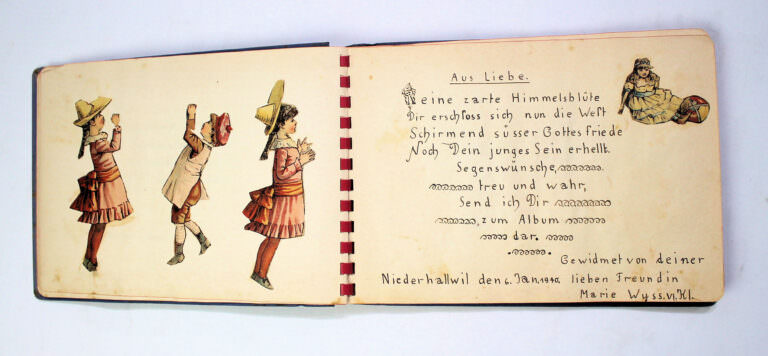 Aus Liebe.
Reine zarte Himmelsblüte
Dir erschloss sich nun die Welt
Schirmend süsser Gottesfriede
Noch Dein junges Sein erhellt.
Segenswünsche,
treu und wahr,
Send ich Dir
, zum Album
dar.
Gewidmet von deiner
Niederhallwil den 6. Jan. 1940. lieben Freundin
Marie Wyss. VI. Kl.